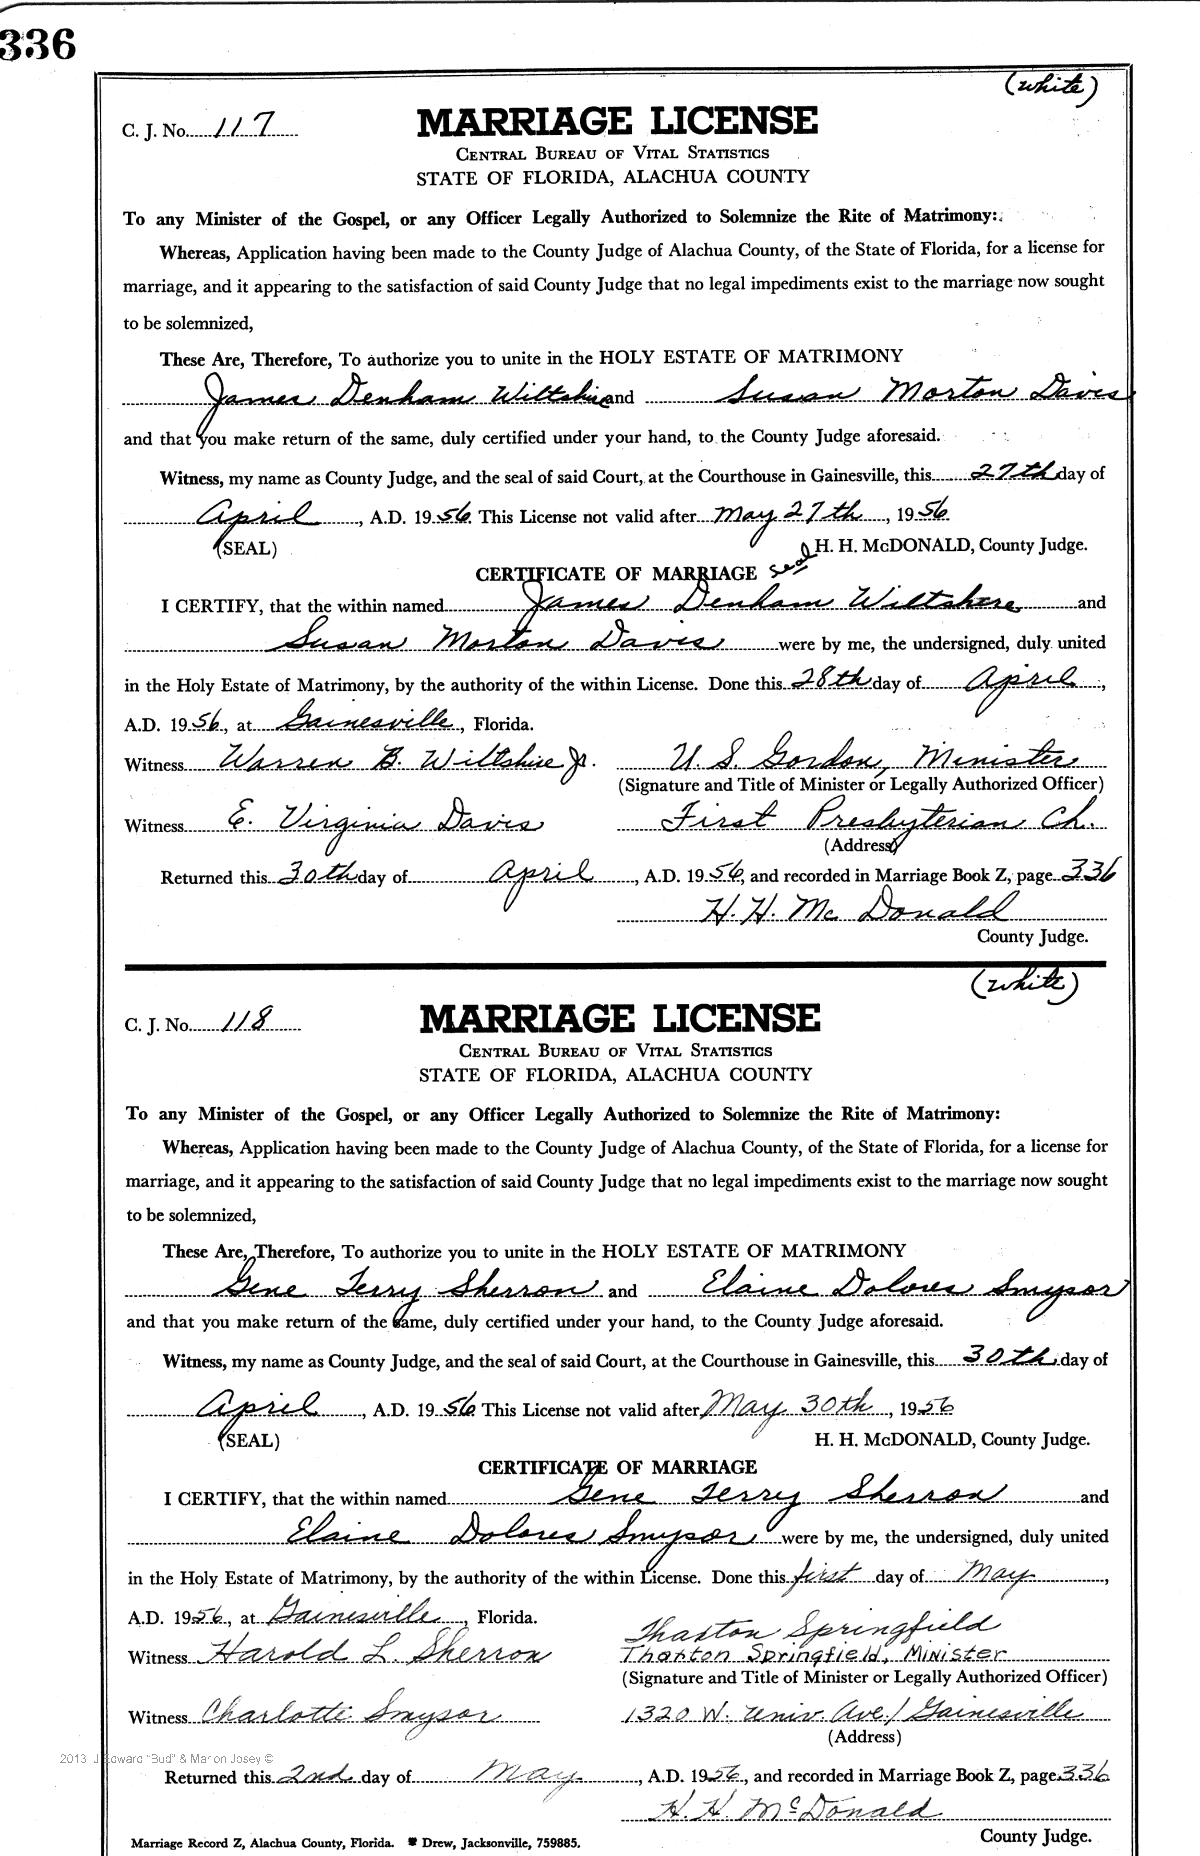 336
(white)
C. J. No. 117
MARRIAGE LICENSE
CENTRAL BUREAU OF VITAL STATISTICS
STATE OF FLORIDA, ALACHUA COUNTY
To any Minister of the Gospel, or any Officer Legally Authorized to Solemnize the Rite of Matrimony:
Whereas, Application having been made to the County Judge of Alachua County, of the State of Florida, for a license for
marriage, and it appearing to the satisfaction of said County Judge that no legal impediments exist to the marriage now sought
to be solemnized,
These Are, Therefore, To authorize you to unite in the HOLY ESTATE OF MATRIMONY
James Denham Wiltshire and Susan Morton Davis
and that you make return of the same, duly certified under your hand, to the County Judge aforesaid.
Witness, my name as County Judge, and the seal of said Court, at the Courthouse in Gainesville, this 27th day of
April, A.D. 1956. This License not valid after May 27th, 1956
(SEAL) seal H. H. McDONALD, County Judge.
CERTIFICATE OF MARRIAGE
I CERTIFY, that the within named James Denham Wiltshire and
Susan Morton Davis were by me, the undersigned, duly united
in the Holy Estate of Matrimony, by the authority of the within License. Done this 28th day of April,
A.D. 1956, at Gainesville, Florida.
Witness Warren B. Wiltshire Jr. U. S. Gordon, Minister
(Signature and Title of Minister or Legally Authorized Officer)
Witness E. Virginia Davis First Presbyterian Ch.
(Address)
Returned this 30th day of April, A.D. 1956, and recorded in Marriage Book Z, page 336
H. H. McDonald
County Judge.
(white)
C. J. No. 118
MARRIAGE LICENSE
CENTRAL BUREAU OF VITAL STATISTICS
STATE OF FLORIDA, ALACHUA COUNTY
To any Minister of the Gospel, or any Officer Legally Authorized to Solemnize the Rite of Matrimony:
Whereas, Application having been made to the County Judge of Alachua County, of the State of Florida, for a license for
marriage, and it appearing to the satisfaction of said County Judge that no legal impediments exist to the marriage now sought
to be solemnized,
These Are, Therefore, To authorize you to unite in the HOLY ESTATE OF MATRIMONY
Gene Terry Sherron and Elaine Dolores Smysor
and that you make return of the same, duly certified under your hand, to the County Judge aforesaid.
Witness, my name as County Judge, and the seal of said Court, at the Courthouse in Gainesville, this 30th day of
April, A.D. 1956. This License not valid after May 30th, 1956
(SEAL) H. H. McDONALD, County Judge.
CERTIFICATE OF MARRIAGE
I CERTIFY, that the within named Gene Terry Sherron and
Elaine Dolores Smysor were by me, the undersigned, duly united
in the Holy Estate of Matrimony, by the authority of the within License. Done this first day of May,
A.D. 1956, at Gainesville, Florida.
Thaxton Springfield
Witness Harold L. Sherron Thaxton Springfield, Minister
(Signature and Title of Minister or Legally Authorized Officer)
Witness Charlotte Smysor 1320 W. Univ. Ave./Gainesville
(Address)
2013 J Edward "Bud" & Marion Josey ©
Returned this 2nd day of May, A.D. 1956, and recorded in Marriage Book Z, page 336
H. H. McDonald
County Judge.
Marriage Record Z, Alachua County, Florida. Drew, Jacksonville, 759885.